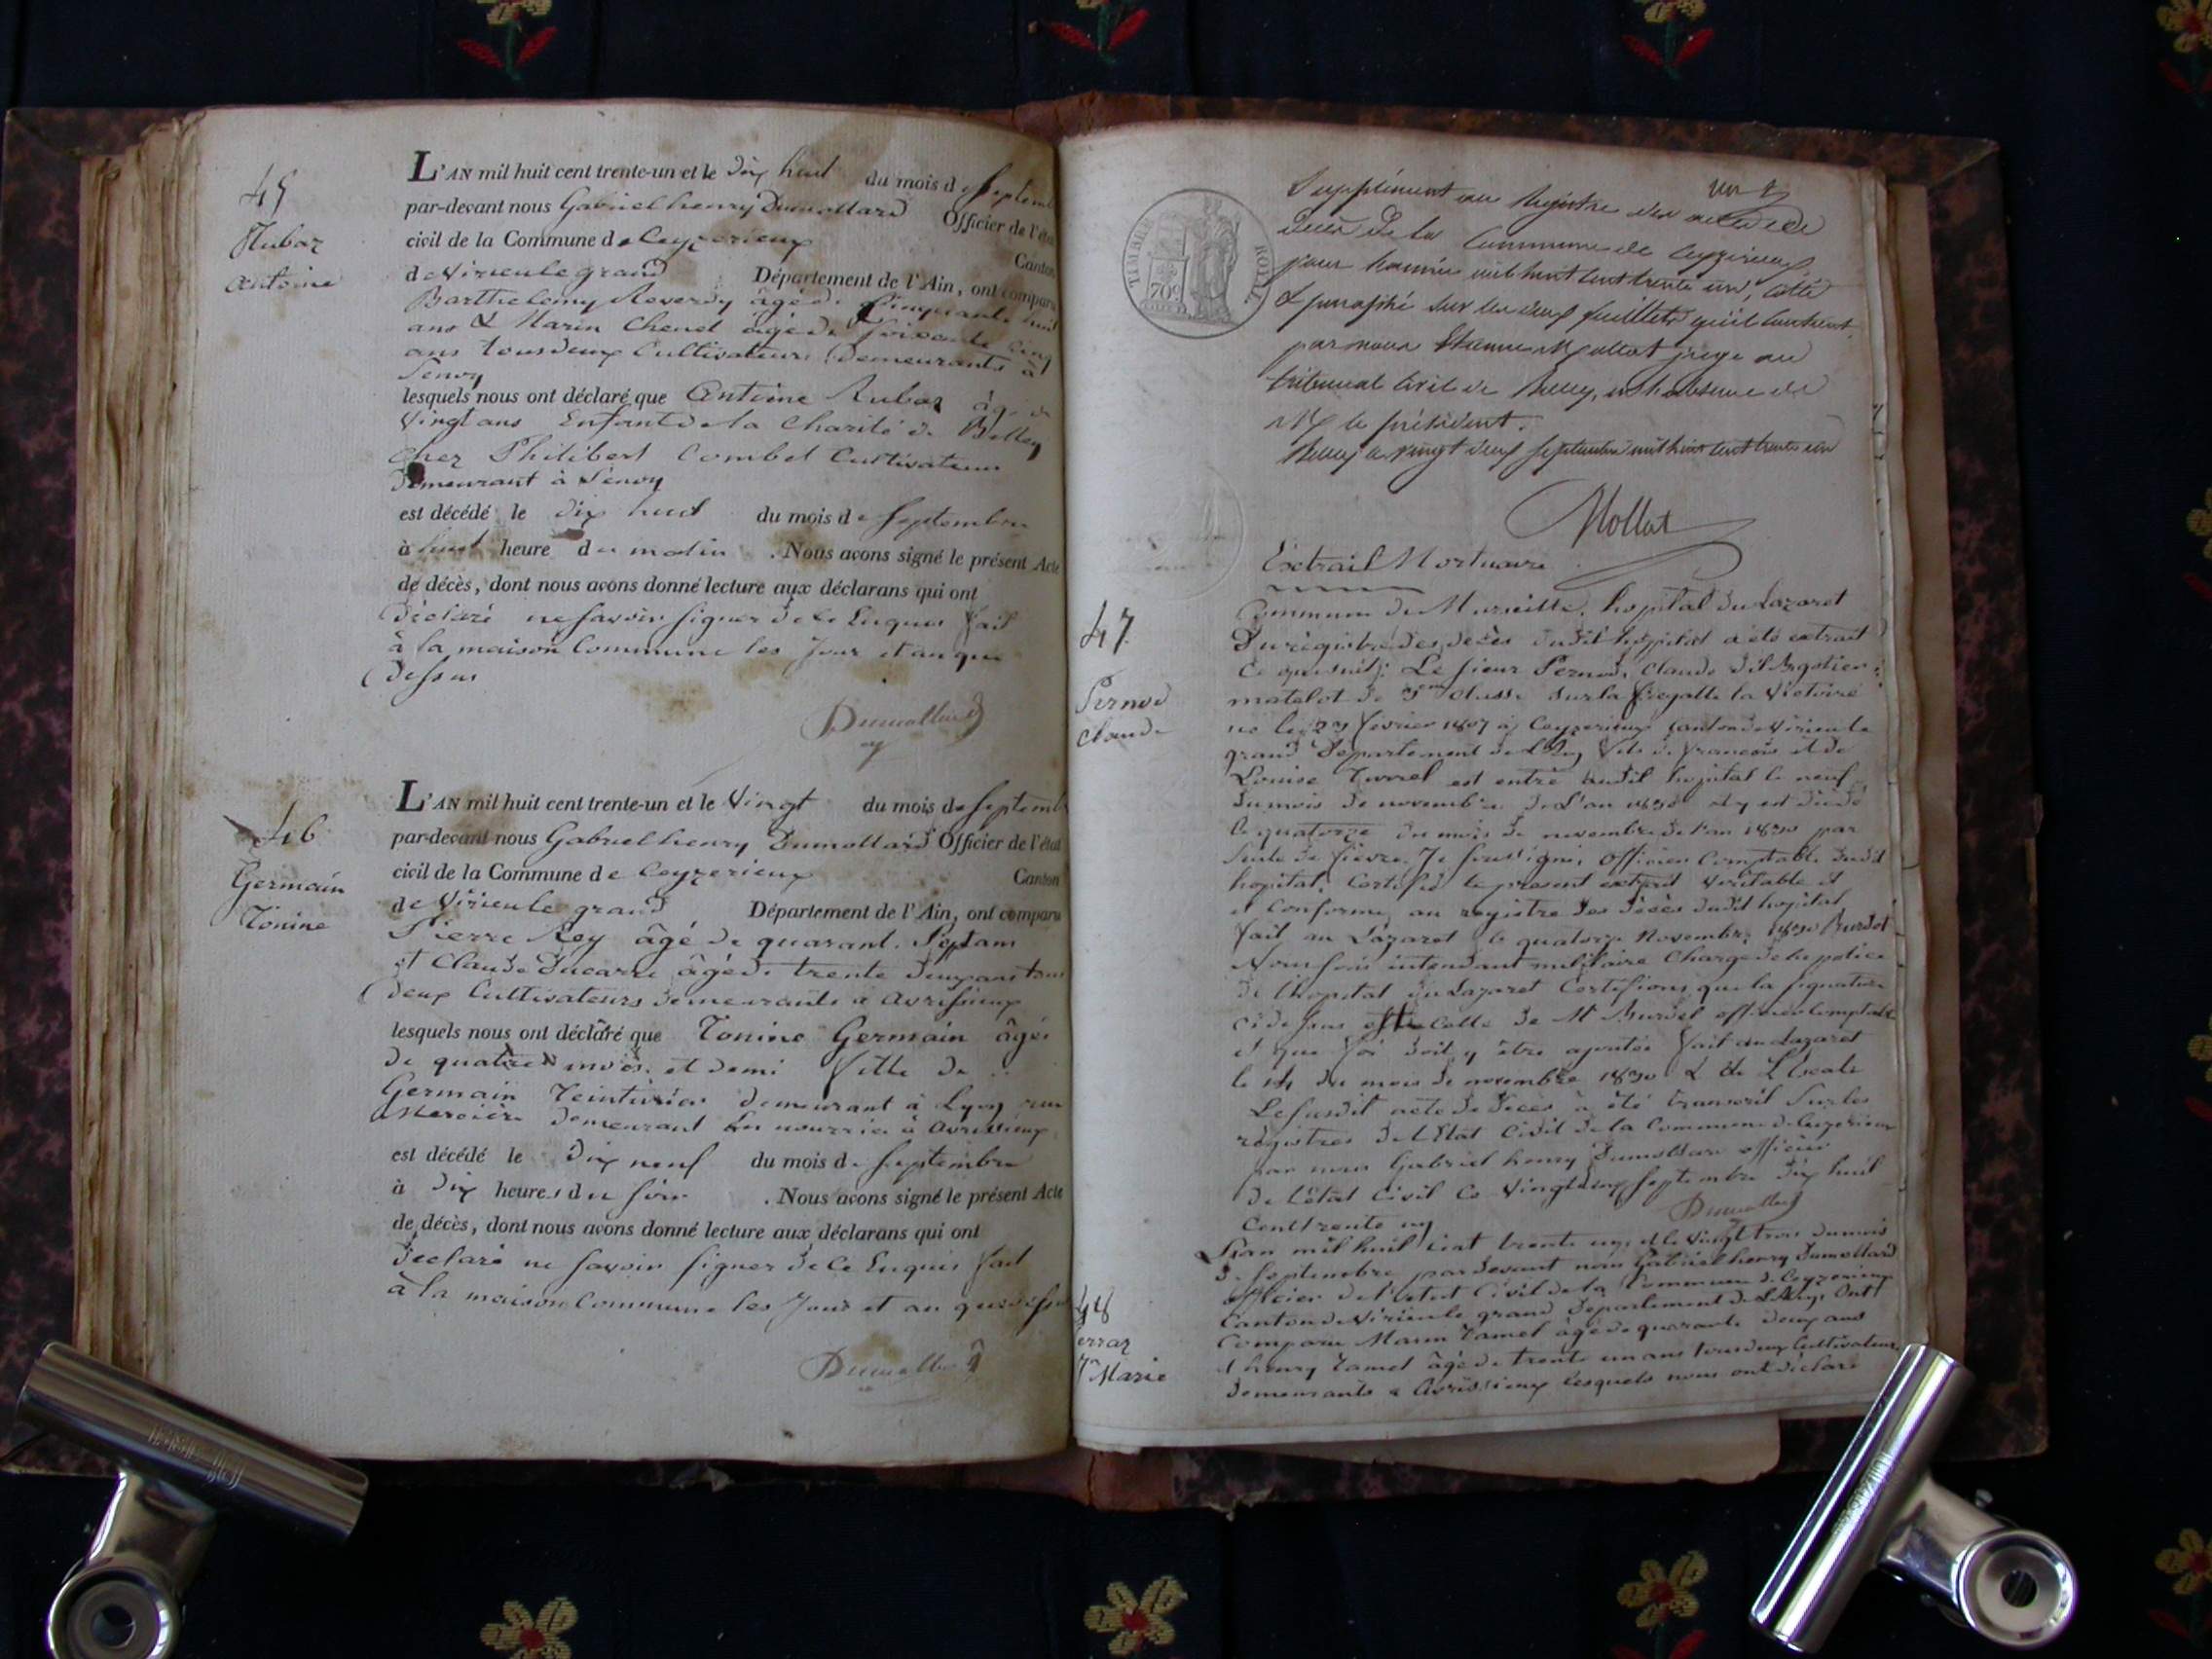 45
Rubaz
Antoine
L'AN mil huit cent trente-un et le dix huit du mois de Septemb
par-devant nous Gabriel henry Dumollard Officier de l'état
civil de la Commune de Ceyzerieux Canton
de Virieule grand Département de l'Ain, ont comparu
Barthelemy Reverdy âgé de Cinquante huit
ans & Marin Chenet âgé de soixante cinq
ans tous deux Cultivateurs Demeurants à
lesquels nous ont déclaré que Antoine Rubaz âgé de
Vingt ans Enfant de la Charité de Belley
chez Philibert Combet Cultivateur
Demeurant à
est décédé le dix huit du mois de Septembre
à huit heure du matin . Nous avons signé le présent Acte
de décès, dont nous avons donné lecture aux déclarans qui ont
Déclaré ne savoir signer de ce Enquis fait
à la maison Commune les Jour et an que
Dessus
Dumollard
46
Germain
Tonine
L'AN mil huit cent trente-un et le Vingt du mois de Septemb
par-devant nous Gabriel henry Dumollard Officier de l'état
civil de la Commune de Ceyzerieux Canton
de Virieule grand Département de l'Ain, ont comparu
Pierre Rey âgé de quarant. Sept ans
et Claude Ducarre âgé de trente deux ans tous
deux Cultivateurs demeurants à Avrissieux
lesquels nous ont déclaré que Tonine Germain âgée
de quatre mois et demi fille de
Germain Teinturier demeurant à Lyon rue
Mercière demeurant en nourrice à Avrissieux
est décédé le Dix neuf du mois de Septembre
à Dix heures du soir . Nous avons signé le présent Acte
de décès, dont nous avons donné lecture aux déclarans qui ont
Déclaré ne savoir signer de Ce Enquis fait
à la maison Commune les Jour et an que dessus
Dumollard
TIMBRE ROYAL
70c
Supplément au Registre des actes de
décès de la Commune de Ceyzerieux
pour l'année mil huit cent trente un, Cotté
& paraphé sur les deux feuillets qu'il contient
par nous Mollat juge au
tribunal Civil de Belley, en l'absence de
M le président.
Belley le vingt deux septembre mil huit cent trente un
Mollat
Extrait Mortuaire
47
Pernod
Claude
Commune de Marseille, hopital du Lazaret
Du registre des décès dudit hopital a été extrait
Ce qui suit: Le sieur Pernod, Claude
matelot de 3eme Classe sur la fregatte la Victoire
né le 23 fevrier 1807 à Ceyzerieux Canton de Virieule
grand Departement de L'Ain fils de françois et de
Louise Turrel est entré audit hopital le neuf
du mois de novembre de L'an 1830 et y est décédé
le quatorze du mois de novembre de l'an 1830 par
suite de fièvre. Je soussigné, Officier Comptable dudit
hopital, Certifie le présent extrait Véritable et
et Conforme au registre des décès dudit hopital
fait au Lazaret le quatorze Novembre 1830 Burdet
Nous sous intendant militaire Chargé de la police
de l'hopital du Lazaret Certifions que la signature
ci dessus est celle de Mr Burdet officier Comptable
et que foi doit y être ajoutée fait au Lazaret
le 14 du mois de novembre 1830
Le susdit acte de Décès à été transcrit sur les
registres de l'Etat Civil de la Commune de Ceyzerieux
par nous Gabriel henry Dumollard officier
de L'état Civil Ce Vingt deux septembre dix huit
Cent trente un
Dumollard
48
erraz
Marie
L'an mil huit cent trente un, et le vingt trois du mois
de Septembre pardevant nous Gabriel henry Dumollard
officier de l'état Civil de la Commune de Ceyzerieux
Canton de Virieule grand Departement de L'Ain, Ont
Comparu Marin Tamet âgé de quarante deux ans
& henry Tamet âgé de trente un ans tous deux Cultivateurs
demeurants à Avrissieux lesquels nous ont déclaré